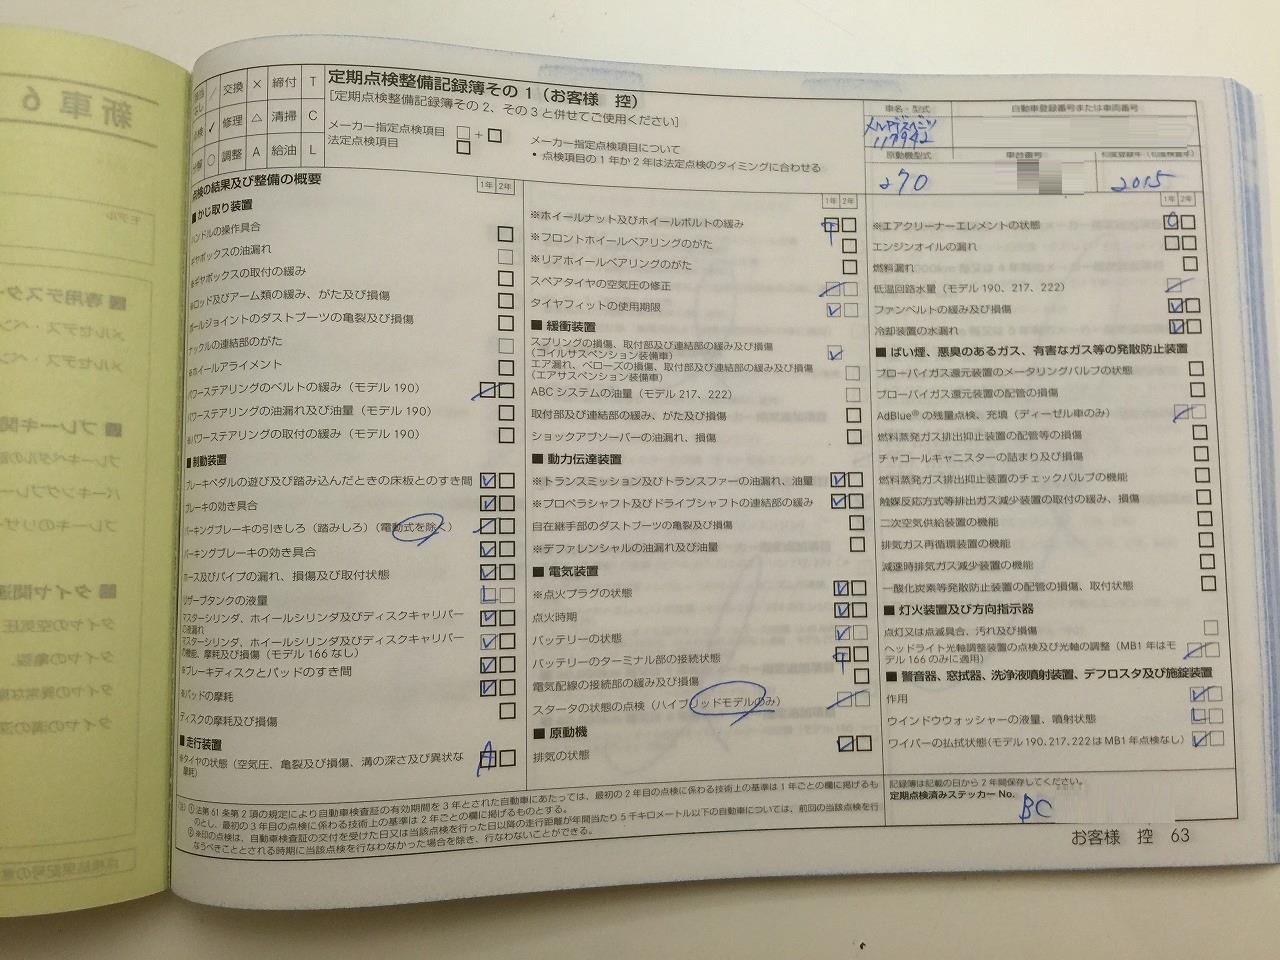 新車6
モデル
専用テスタ
メルセデス・ベン
メルセデス ベン
ブレーキ関
ブレーキペダルの
パーキングブレー
ブレーキのリザー
タイヤ関連
タイヤの空気圧
タイヤの亀裂
タイヤの異常な
タイヤの溝の深
交換 × 締付 T
✓ 修理 △ 清掃 C
○ 調整 A 給油 L
定期点検整備記録簿その1(お客様 控)
[定期点検整備記録簿その2、その3と併せてご使用ください]
メーカー指定点検項目 □+□
法定点検項目 □
メーカー指定点検項目について
・点検項目の1年か2年は法定点検のタイミングに合わせる
車名・型式
メルセデスベンツ
117942
自動車登録番号または車両番号
原動機型式
270
車台番号
初度登録年(初度検査年)
2015
点検の結果及び整備の概要
1年 2年
■かじ取り装置
ハンドルの操作具合
ギヤボックスの油漏れ
※ギヤボックスの取付の緩み
※ロッド及びアーム類の緩み、がた及び損傷
ボールジョイントのダストブーツの亀裂及び損傷
ナックルの連結部のがた
※ホイールアライメント
パワーステアリングのベルトの緩み(モデル190)
パワーステアリングの油漏れ及び油量(モデル190)
※パワーステアリングの取付の緩み(モデル190)
■制動装置
ブレーキペダルの遊び及び踏み込んだときの床板とのすき間 ✓
ブレーキの効き具合 ✓
パーキングブレーキの引きしろ(踏みしろ)(電動式を除く)
パーキングブレーキの効き具合 ✓
ホース及びパイプの漏れ、損傷及び取付状態 ✓
リザーブタンクの液量 L
マスターシリンダ、ホイールシリンダ及びディスクキャリパー ✓
の液漏れ
マスターシリンダ、ホイールシリンダ及びディスクキャリパー ✓
の機能、摩耗及び損傷(モデル166なし)
※ブレーキディスクとパッドのすき間 ✓
※パッドの摩耗 ✓
ディスクの摩耗及び損傷
■走行装置
※タイヤの状態(空気圧、亀裂及び損傷、溝の深さ及び異状な A
摩耗)
1年 2年
※ホイールナット及びホイールボルトの緩み T
※フロントホイールベアリングのがた
※リアホイールベアリングのがた
スペアタイヤの空気圧の修正
タイヤフィットの使用期限 ✓
■緩衝装置
スプリングの損傷、取付部及び連結部の緩み及び損傷 ✓
(コイルサスペンション装備車)
エア漏れ、ベローズの損傷、取付部及び連結部の緩み及び損傷
(エアサスペンション装備車)
ABCシステムの油量(モデル217、222)
取付部及び連結部の緩み、がた及び損傷
ショックアブソーバーの油漏れ、損傷
■動力伝達装置
※トランスミッション及びトランスファーの油漏れ、油量 ✓
※プロペラシャフト及びドライブシャフトの連結部の緩み ✓
自在継手部のダストブーツの亀裂及び損傷
※デファレンシャルの油漏れ及び油量
■電気装置
※点火プラグの状態 ✓
点火時期 ✓
バッテリーの状態 ✓
バッテリーのターミナル部の接続状態 T
電気配線の接続部の緩み及び損傷
スタータの状態の点検(ハイブリッドモデルのみ)
■原動機
排気の状態 ✓
1年 2年
※エアクリーナーエレメントの状態 C
エンジンオイルの漏れ
燃料漏れ
低温回路水量(モデル190、217、222)
ファンベルトの緩み及び損傷 ✓
冷却装置の水漏れ ✓
■ばい煙、悪臭のあるガス、有害なガス等の発散防止装置
ブローバイガス還元装置のメータリングバルブの状態
ブローバイガス還元装置の配管の損傷
AdBlue®の残量点検、充填(ディーゼル車のみ)
燃料蒸発ガス排出抑止装置の配管等の損傷
チャコールキャニスターの詰まり及び損傷
燃料蒸発ガス排出抑止装置のチェックバルブの機能
触媒反応方式等排出ガス減少装置の取付の緩み、損傷
二次空気供給装置の機能
排気ガス再循環装置の機能
減速時排気ガス減少装置の機能
一酸化炭素等発散防止装置の配管の損傷、取付状態
■灯火装置及び方向指示器
点灯又は点滅具合、汚れ及び損傷
ヘッドライト光軸調整装置の点検及び光軸の調整(MB1年はモ
デル166のみに適用)
■警音器、窓拭器、洗浄液噴射装置、デフロスタ及び施錠装置
作用 ✓
ウインドウウォッシャーの液量、噴射状態 L
ワイパーの払拭状態(モデル190、217、222はMB1年点検なし) ✓
(注)①法第61条第2項の規定により自動車検査証の有効期間を3年とされた自動車にあたっては、最初の2年目の点検に係わる技術上の基準は1年ごとの欄に掲げるも
のとし、最初の3年目の点検に係わる技術上の基準は2年ごとの欄に掲げるものとする。
②※印の点検は、自動車検査証の交付を受けた日又は当該点検を行った日以降の走行距離が年間当たり5千キロメートル以下の自動車については、前回の当該点検を行
なうべきこととされる時期に当該点検を行わなかった場合を除き、行なわないことができる。
記録簿は記載の日から2年間保存してください。
定期点検済みステッカー No.
BC
お客様 控 63